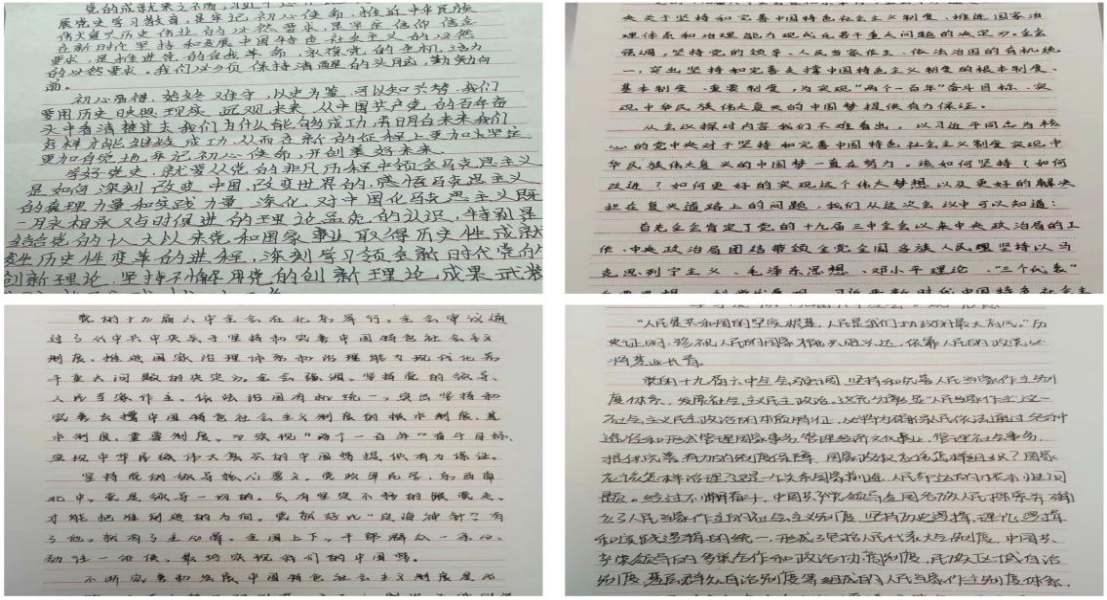 党的成就来之不易,
展党史学习教育,是牢记初心使命、推进中华民族
伟大复兴历史伟业的必然要求,是坚定信仰信念
在新时代坚持和发展中国特色社会主义的必然
要求,是推进党的自我革命、永葆党的生机活力
的必然要求。我们必须保持清醒的头脑,勤勉向
前。
初心易得,始终难守,以史为鉴,可以知兴替。我们
要用历史映照现实、远观未来,从中国共产党的百年奋
斗中看清楚过去我们为什么能够成功,弄明白未来我们
怎样才能继续成功,从而在新的征程上更加坚定、
更加自觉地牢记初心使命、开创美好未来。
学好党史,就要从党的非凡历程中领会马克思主义
是如何深刻改变中国、改变世界的,感悟马克思主义
的真理力量和实践力量,深化对中国化马克思主义既
一脉相承又与时俱进的理论品质的认识,特别是
结合党的十八大以来党和国家事业取得历史性成就
发生历史性变革的进程,深刻学习领会新时代党的
创新理论,坚持不懈用党的创新理论成果武装
央关于坚持和完善中国特色社会主义制度、推进国家治
理体系和治理能力现代化若干重大问题的决定》。全会
强调,坚持党的领导、人民当家作主、依法治国的有机统
一,突出坚持和完善支撑中国特色主义制度的根本制度、
基本制度、重要制度,为实现“两个一百年”奋斗目标、实
现中华民族伟大复兴的中国梦提供有力保证。
从会议探讨内容我们不难看出,以习近平同志为核
心的党中央对于坚持和完善中国特色社会主义制度实现中
华民族伟大复兴的中国梦一直在努力,该如何坚持?如何
改进?如何更好的实现这个伟大梦想以及更好的解决
拦在复兴道路上的问题,我们从这次会议中可以知道:
首先全会肯定了党的十九届三中全会以来中央政治局的工
作。中央政治局团结带领全党全国各族人民坚持以马
克思列宁主义、毛泽东思想、邓小平理论、“三个代表”
党的十九届六中全会在北京举行。全会审议通
过了《中共中央关于坚持和完善中国特色社会主义
制度、推进国家治理体系和治理能力现代化若
干重大问题的决定》。全会强调,坚持党的领导、
人民当家作主、依法治国有机统一,突出坚持和
完善支撑中国特色社会主义制度的根本制度、基
本制度、重要制度,为实现“两个一百年”奋斗目标、
实现中华民族伟大复兴的中国梦提供有力保证。
坚持党的领导核心要义。党政军民学,东西南
北中,党是领导一切的。只有坚定不移的跟党走,
才能把准前进的方向。党就好比“定海神针”,有
了他,就有了主心骨。全国上下,干部群众一条心,
劲往一处使,最终实现我们的中国梦。
不断完善和发展中国特色社会主义制度是
“人民是共和国的坚实根基,人民是我们执政的最大底气。”历
史证明,
党的十九届六中全会强调,坚持和完善人民当家作主制
度体系,发展社会主义民主政治。这充分彰显“人民当家作主”这一
社会主义民主政治的本质特征,
途径和形式管理国家事务,管理经济文化事业,管理社会事务,
提供完善有力的制度保障。国家政权应该怎样组织?国家
应该怎样治理?这是一个关系国家前途、人民命运的根本性问
题。经过不懈奋斗,中国共产党领导全国各族人民探索并确
立了人民当家作主的社会主义制度,坚持历史逻辑、理论逻辑
和实践逻辑的统一,形成了坚持人民代表大会制度、中国共
产党领导的多党合作和政治协商制度、民族区域自治
制度、基层群众自治制度等组成的人民当家作主制度体系。